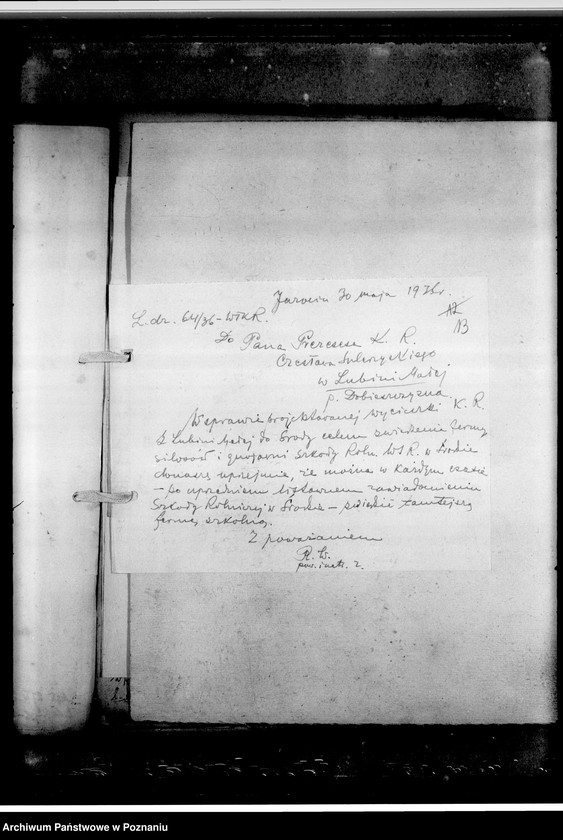 Jarocin 30 maja 1936r.
L.dz. 64/36-WTKR.
12
13
Do Pana Prezesa K. R.
Czesława
w Lubini Małej
p. Dobieszczyzna.
W sprawie projektowanej wycieczki K. R.
z Lubini Małej do Środy celem zwiedzenia fermy,
silosów i gnojowni Szkoły Roln. W.I.R. w Środzie
donoszę uprzejmie, że można w każdym czasie
– po uprzedniem listownem zawiadomieniu
Szkoły Rolniczej w Środzie – zwiedzić tamtejszą
fermę szkolną.
Z poważaniem
R. W.
pow. instr. r.
Archiwum Państwowe w Poznaniu